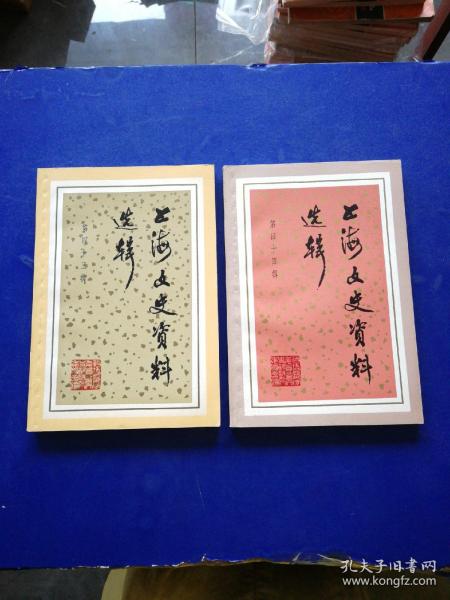 上海文史资料
选辑
上海文史资料
选辑
第四十五辑
孔夫子旧书网
www.kongfz.com